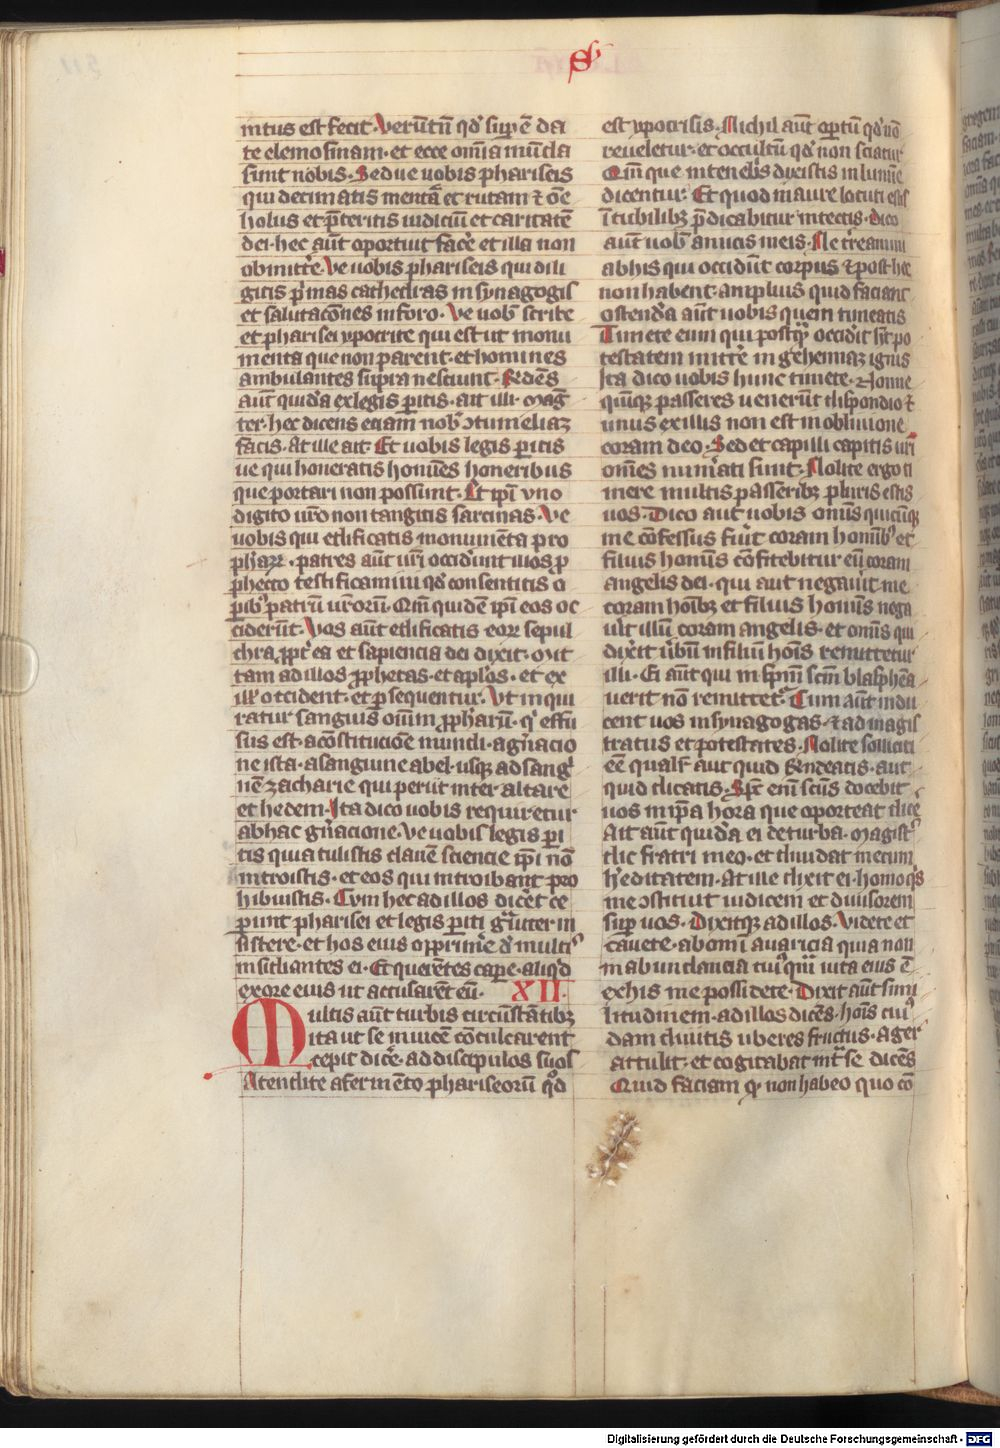 S
intus est fecit. Verūtn̄ qd̓ suꝑ ē da
te elemosinam. et ecce om̄ia mūda
sunt nobis. Sed ue uobis phariseis
qui decimatis mentā et rutam ⁊ oē
holus et p̄teritis iudiciū et caritatē
dei. hec aūt oportuit fac̓e et illa non
obmitt̓e. Ve uobis phariseis qui dili
gitis p̓mas cathedras in synagogis
et salutacōnes in foro. Ve uob̓ scribe
et pharisei ypocrite qui estis ut monu
menta que non parent. et homines
ambulantes supra nesciunt. Rn̄dēs
aūt quidā ex legis ꝑitis. ait illi. Mag̓
ter. hec dicens etiam nob̓ ↄtumeliaꝫ
facis. At ille ait. Et uobis legis ꝑitis
ue qui honeratis homīes honeribus
que portari non possunt. Et ip̄i vno
digito ur̄o non tangitis sarcinas. Ve
uobis qui edificatis monumēta pro
phaꝝ. patres aūt ur̄i occiderūt illos ꝓ
phecto testificamini qd̓ consentitis o
ꝑib̓ patrū ur̄orū. Qm̄ quidē ip̄i eos oc
ciderūt. Vos aūt edificatis eoꝝ sepul
chra ꝓpt̓ ea et sapiencia dei dixit. Mit
tam ad illos ꝓphetas. et apl̓os. et ex
ill̓ occident. et ꝑsequentur. Vt inqui
ratur sanguis oīum ꝓphetarū. q̓ effu
sus est. a cōstitucioē mundi. a gn̄acio
ne ista. a sanguine abel. usqꝫ ad sang̓
nē zacharie qui periit inter altare
et hedem. Ita dico uobis requiretur
ab hac gn̄acione. Ve uobis legis ꝑi
tis quia tulistis clauē sciencie ip̄i nō
introistis. et eos qui introibant pro
hibuistis. Cum hec ad illos dic̓et ce
ꝑunt pharisei et legis ꝑiti gͣuiter in
sistere. et hos eius opprim̓e d̓ multis
insidiantes ei. Et querētes caꝑe. aliq̓d
ex ore eius ut accusarent eū. XII.
Multis aūt turbis circūstātibꝫ
ita ut se inuicē cōculcarent
cepit dic̓e. ad discipulos suos
Atendite a fermēto phariseorū qd̓
est ypocrisis. Nichil aūt oꝑtū qd̓ nō
reueletur. et occultū qd̓ non sciatur
Qm̄ que in tenebris dixistis in lumīe
dicentur. Et quod in aure locuti estis
ī cubilibꝫ p̄dicabitur in tectis. Dico
aūt uob̓ amicis meis. Ne terreamini
ab his qui occidūt corpus ⁊ post hec
non habent. amplius quid faciant
ostendā aūt uobis quem timeatis
Timete eum qui postqͣ occiderit hꝫ po
testatem mitt̓e in gehennaꝫ ignis
Ita dico uobis hunc timete. Nonne
quīqꝫ passeres ueneūt dispondio ⁊
unus ex illis non est in obliuione
coram deo. Sed et capilli capitis ur̄i
om̄es num̓ati sunt. Nolite ergo ti
mere multis passeribꝫ pluris estis
uos. Dico aut uobis om̄is quicūqꝫ
me cōfessus fūit coram homīb̓ et
filius homīs cōfitebitur eū coram
angelis dei. qui aut negauit me
coram hoībꝫ et filius homīs nega
uit illū coram angelis. et om̄is qui
dixit ūbū in filiū hoīs remittetur
illi. Ei aūt qui in sp̄m sc̄m blasphēa
uerit nō remittetͬ. Cum aūt indu
cent uos in synagogas. ⁊ ad magis
tratus et potestates. Nolite solliciti
eē qualit̓ aut quid rn̄deatis. aut
quid dicatis. Sp̄c enī sc̄us docebit
uos in ip̄a hora que oporteat dic̓e
Ait aūt quidā ei de turba. Magist̓
dic fratri meo. et diuidat mecum
h̓editatem. At ille dixit ei. homo qͥs
me ↄstituit iudicem et diuisorem
suꝑ uos. Dixitqꝫ ad illos. Videte et
cauete. ab om̄i auaricia quia non
in abundancia cui̓ qͣm uita eius ē
ex his que possidete. Dixit aūt simi
litudinem. ad illos dicēs. hoīs cui̓
dam diuitis uberes fructus. ager
attulit. et cogitabat intͣ se dicēs
Quid faciam qͣ non habeo quo cō
Digitalisierung gefördert durch die Deutsche Forschungsgemeinschaft - DFG